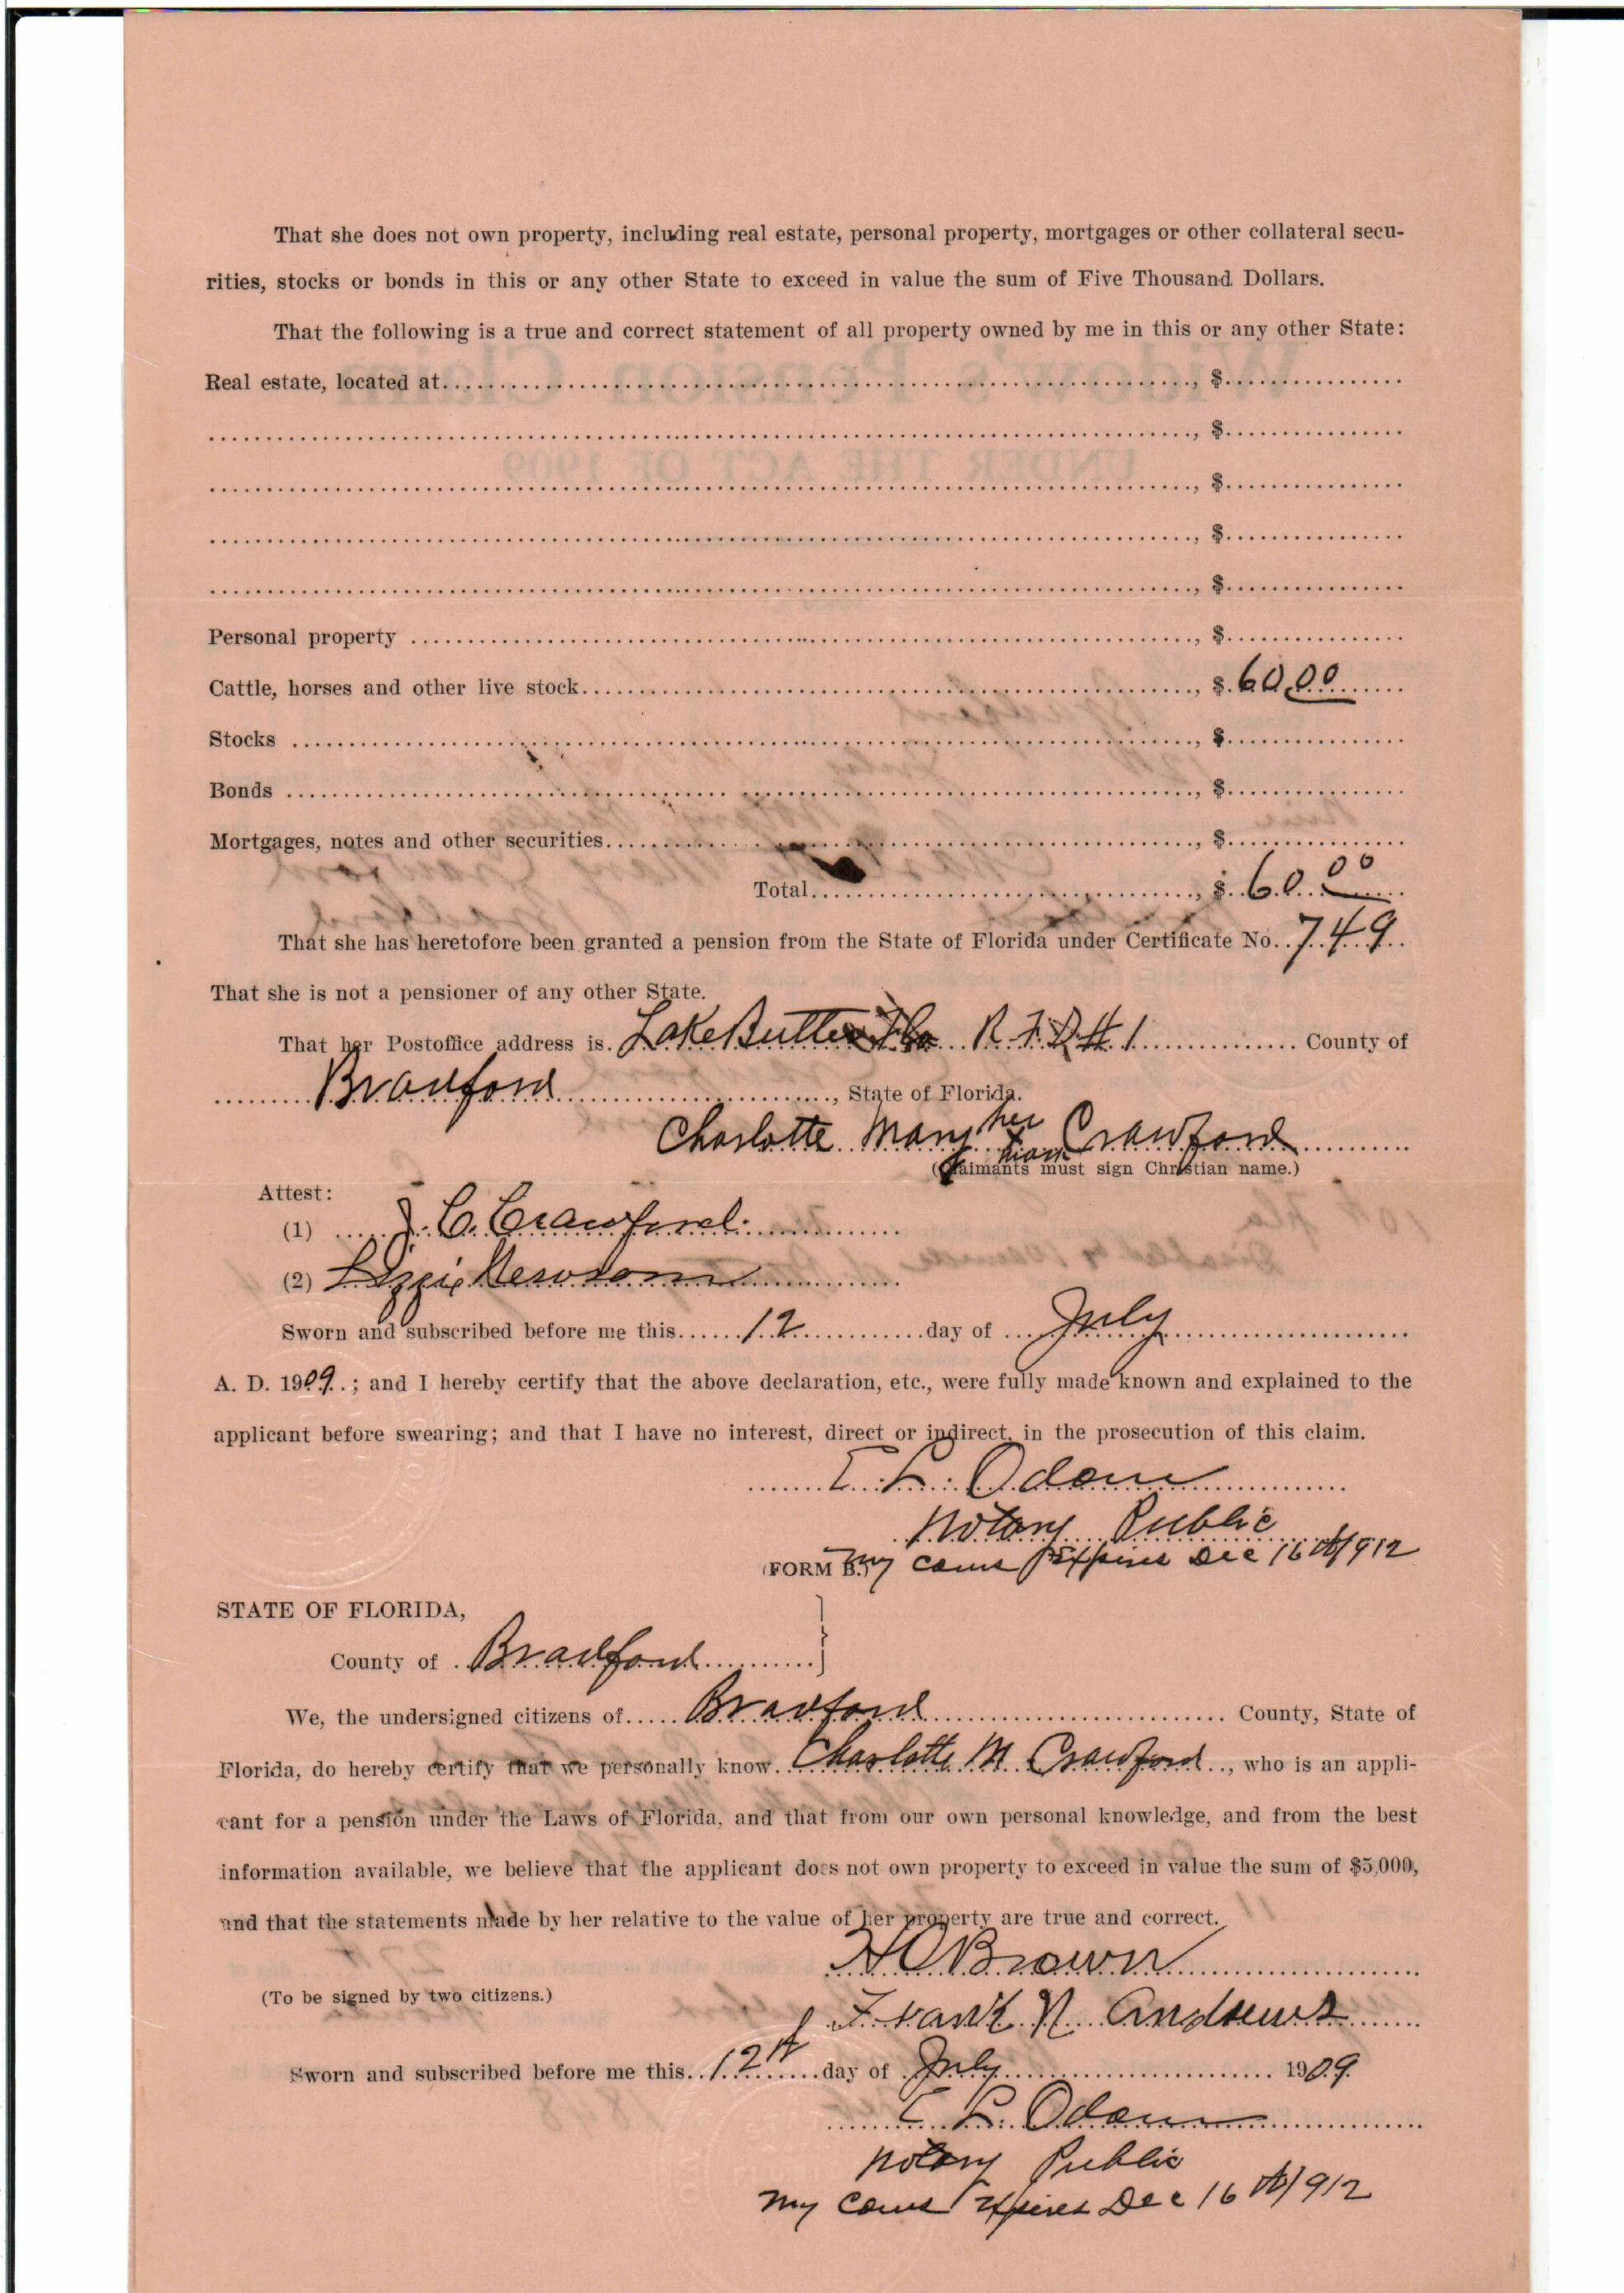 That she does not own property, including real estate, personal property, mortgages or other collateral secu-
rities, stocks or bonds in this or any other State to exceed in value the sum of Five Thousand Dollars.
That the following is a true and correct statement of all property owned by me in this or any other State:
Real estate, located at........, $........
........, $........
........, $........
........, $........
........, $........
Personal property ........, $........
Cattle, horses and other live stock........, $ 60.00
Stocks ........, $........
Bonds ........, $........
Mortgages, notes and other securities........, $........
Total........, $ 60.00
That she has heretofore been granted a pension from the State of Florida under Certificate No. 749
That she is not a pensioner of any other State.
That her Postoffice address is. Lake Butler Fla R.F.D # 1 ........ County of
Bradford ........, State of Florida.
Charlotte Mary her x mark Crawford
(Claimants must sign Christian name.)
Attest:
(1) J. C. Crawford.
(2) Lizzie Newsom
Sworn and subscribed before me this 12 day of July
A. D. 1909.; and I hereby certify that the above declaration, etc., were fully made known and explained to the
applicant before swearing; and that I have no interest, direct or indirect, in the prosecution of this claim.
E. L. Odom
Notary Public
(FORM B.) My Coms Expires Dec 16th 1912
STATE OF FLORIDA,
County of Bradford
We, the undersigned citizens of Bradford County, State of
Florida, do hereby certify that we personally know Charlotte M Crawford, who is an appli-
cant for a pension under the Laws of Florida, and that from our own personal knowledge, and from the best
information available, we believe that the applicant does not own property to exceed in value the sum of $5,000,
and that the statements made by her relative to the value of her property are true and correct.
H O Brown
(To be signed by two citizens.)
Frank N. Andrews
Sworn and subscribed before me this 12th day of July 1909
E L. Odom
Notary Public
My Coms Expires Dec 16th 1912